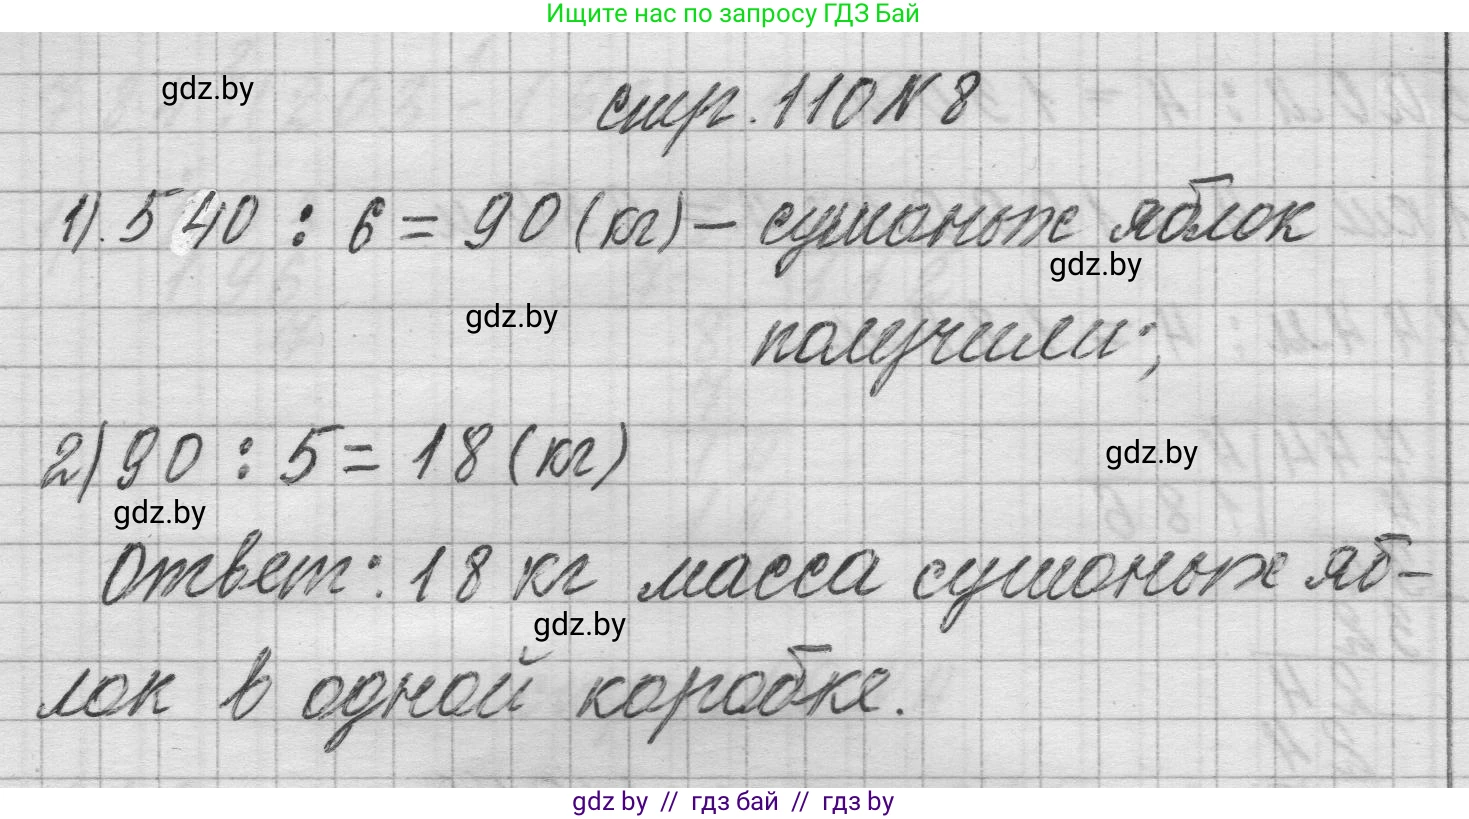 Ищите нас по запросу ГДЗ Бай
gdz.by
стр. 110 № 8
1). 540 : 6 = 90 (кг) – сушоных яблок
gdz.by
gdz.by
получили;
2) 90 : 5 = 18 (кг)
gdz.by
gdz.by
Ответ: 18 кг масса сушоных яб-
gdz.by
лок в одной коробке.
gdz by // гдз бай // гдз by